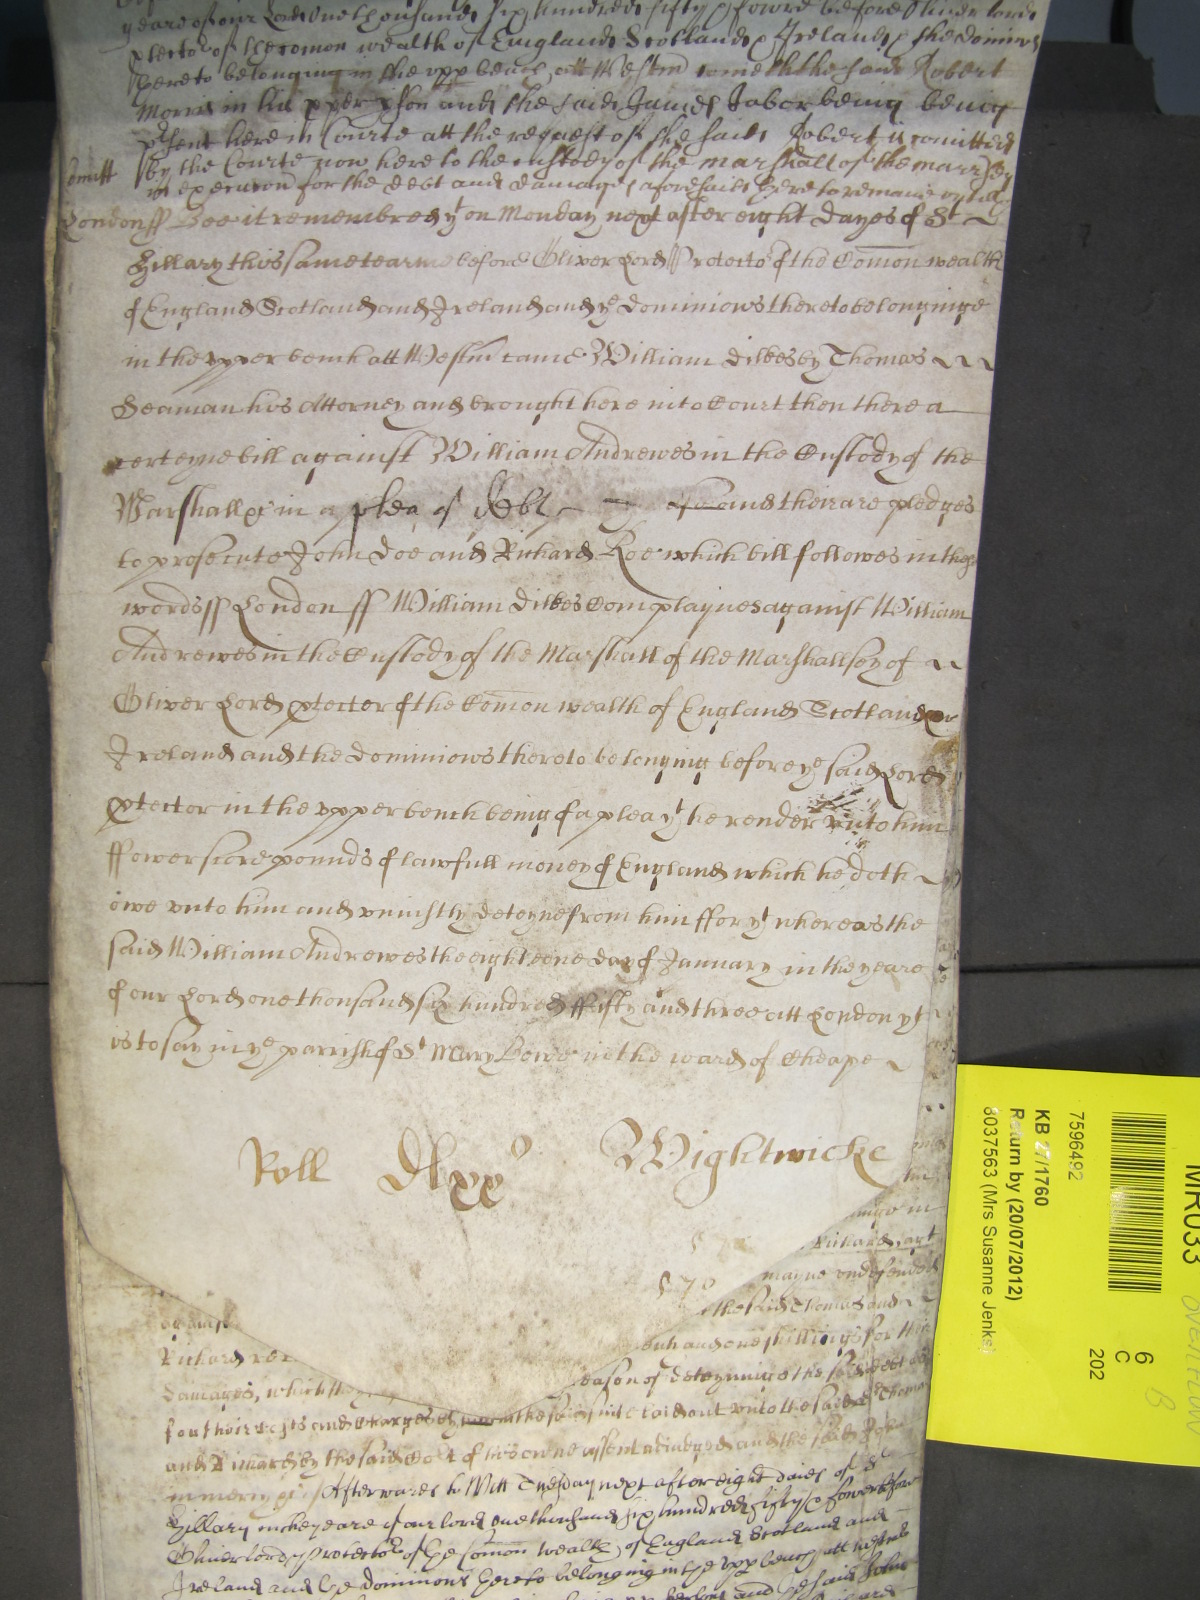 yeare of our Lord one thousand six hundred fifty & fowre before Oliver lord
ptector of the comon wealth of England Scotland & Ireland & the dominions
thereto belonging in the vpp bench att Westm cometh the said Robert
Morris in his pper pson and the said James Tabor being
psent here in Courte att the request of the said Robert is comitted
Comitt by the Courte now here to the custody of the marshall of the marr
in execucon for the debt and damages aforesaid there to remaine vntill
London ss Bee it remembred yt on Monday next after eight dayes of St
Hillary this same tearme before Oliver Lord Protector of the Comon wealth
of England Scotland and Ireland and ye dominions thereto belonginge
in the vpper bench att Westm came William Dilkes by Thomas
Seaman his Attorney and brought here into Court then there a
certeyne bill against William Andrewes in the Custody of the
Marshall &c in a plea of debt and their are pledges
to prosecute John Doe and Richard Roe which bill followes in these
words ss London ss William Dilkes Complaynes against William
Andrewes in the Custody of the Marshall of the Marshallsey of
Oliver Lord ptector of the Comon wealth of England Scotland and
Ireland and the dominions thereto belonging before ye said Lord
ptector in the vpper bench being of a plea yt he render vnto him
ffower score pounds of lawfull money of England which he doth
owe vnto him and vniustly deteyne from him ffor yt whereas the
said William Andrewes the eighteene day of January in the yeare
of our Lord one thousand six hundred ffifty and three att London yt
is to say in ye parrish of St Mary Bowe in the ward of Cheape
Roll Dlxxo Wightwicke
570
Richard
mayne vndefended
the said Thomas and
Richard and one shillings for their
damages, which reason of deteyning the said debt
for their costs and charges by them in the suite laid out vnto the said Thomas
and by the said Court of his owne assent adiudged and the said
in mercy &c Afterwards to Witt Tuesday next after eight daies of St
Hillary in the yeare of our lord one thousand six hundred fifty & fower before
Oliver lord Protector of the Comon wealth of England Scotland and
Ireland and the dominions thereto belonging in the vpp bench att westm
and the said John
MR033
6
C
202
7596492
KB 27/1760
Return by (20/07/2012)
6037563 (Mrs Susanne Jenks)